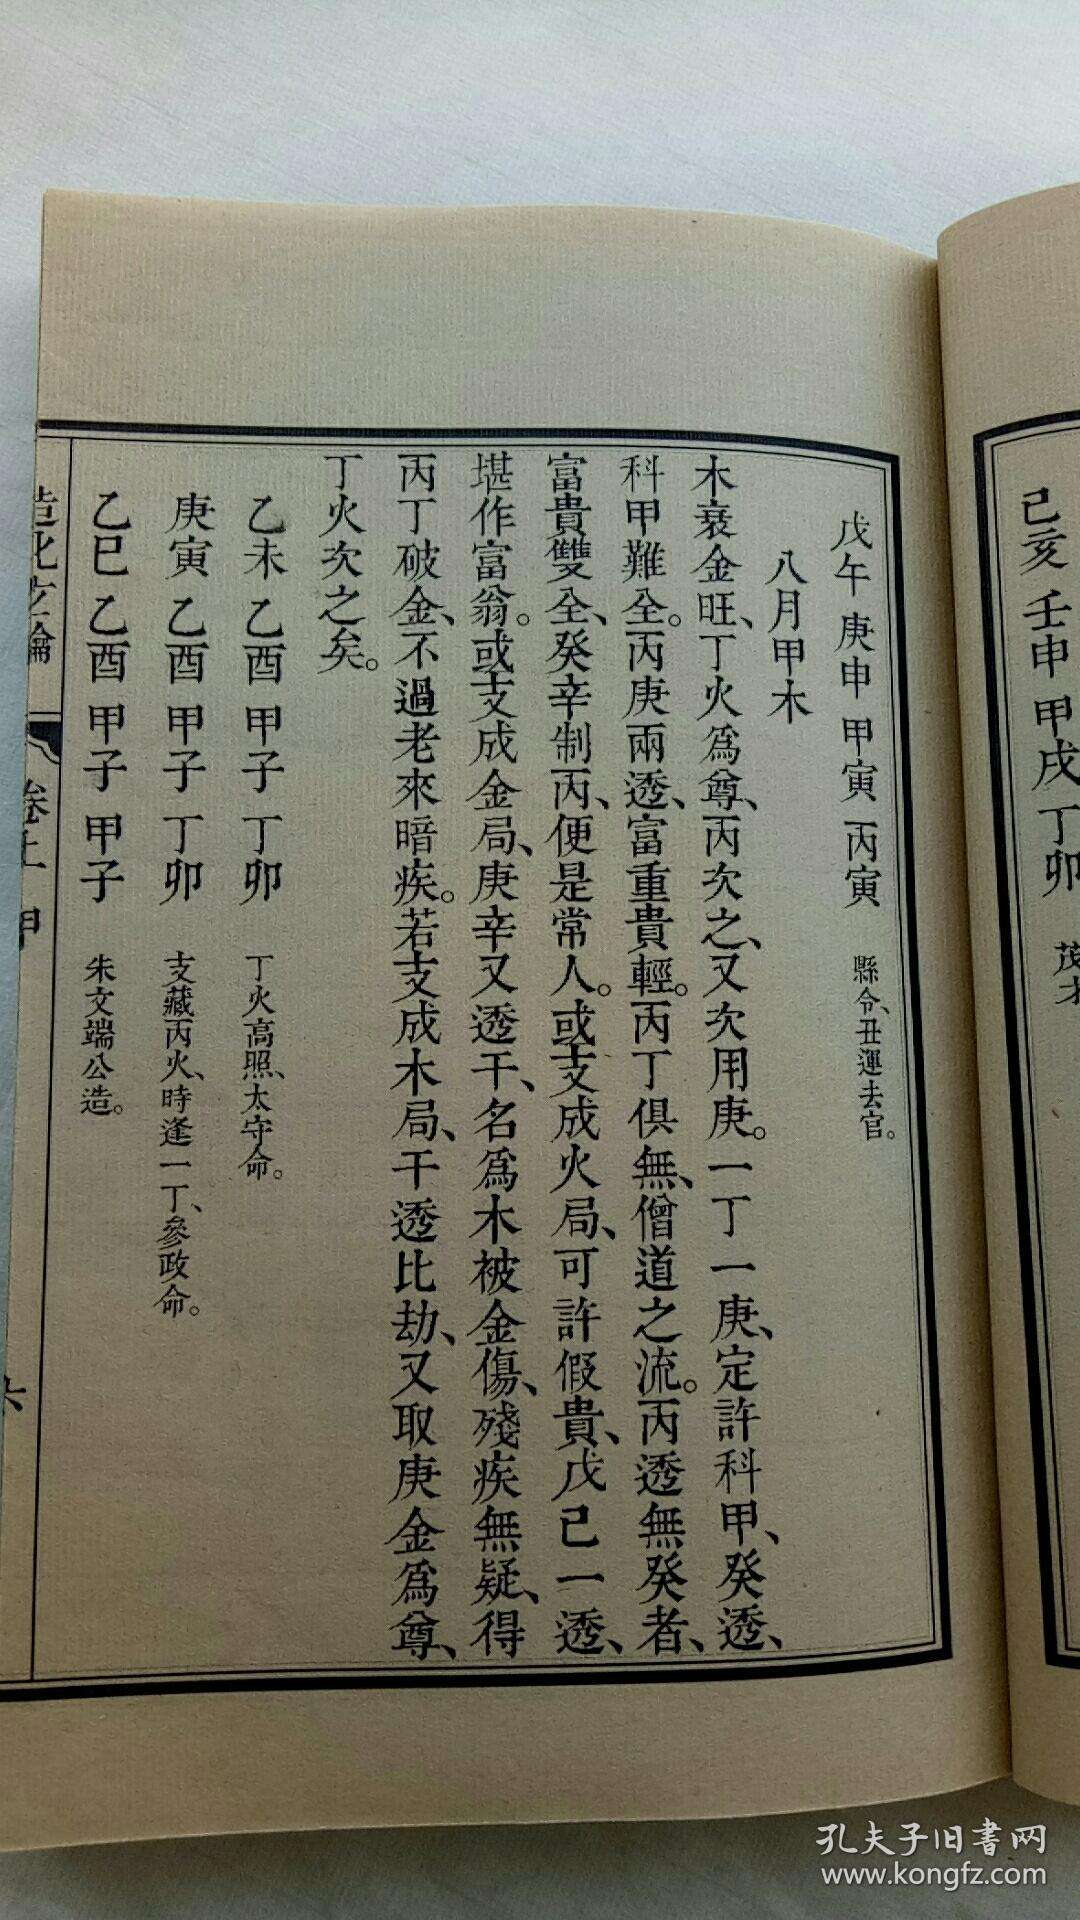 己亥 壬申 甲戌 丁卯 茂才
戊午 庚申 甲寅 丙寅 縣令、丑運去官。
八月甲木
木衰金旺、丁火爲尊、丙次之、又次用庚。一丁一庚、定許科甲、癸透、
科甲難全。丙庚兩透、富重貴輕。丙丁俱無、僧道之流。丙透無癸者、
富貴雙全、癸辛制丙、便是常人。或支成火局、可許假貴、戊己一透、
堪作富翁。或支成金局、庚辛又透干、名爲木被金傷、殘疾無疑、得
丙丁破金、不過老來暗疾。若支成木局、干透比劫、又取庚金爲尊、
丁火次之矣。
乙未 乙酉 甲子 丁卯 丁火高照、太守命。
庚寅 乙酉 甲子 丁卯 支藏丙火、時逢一丁、參政命。
乙巳 乙酉 甲子 甲子 朱文端公造。
造化 論 卷上 甲 六
孔夫子旧书网
www.kongfz.com